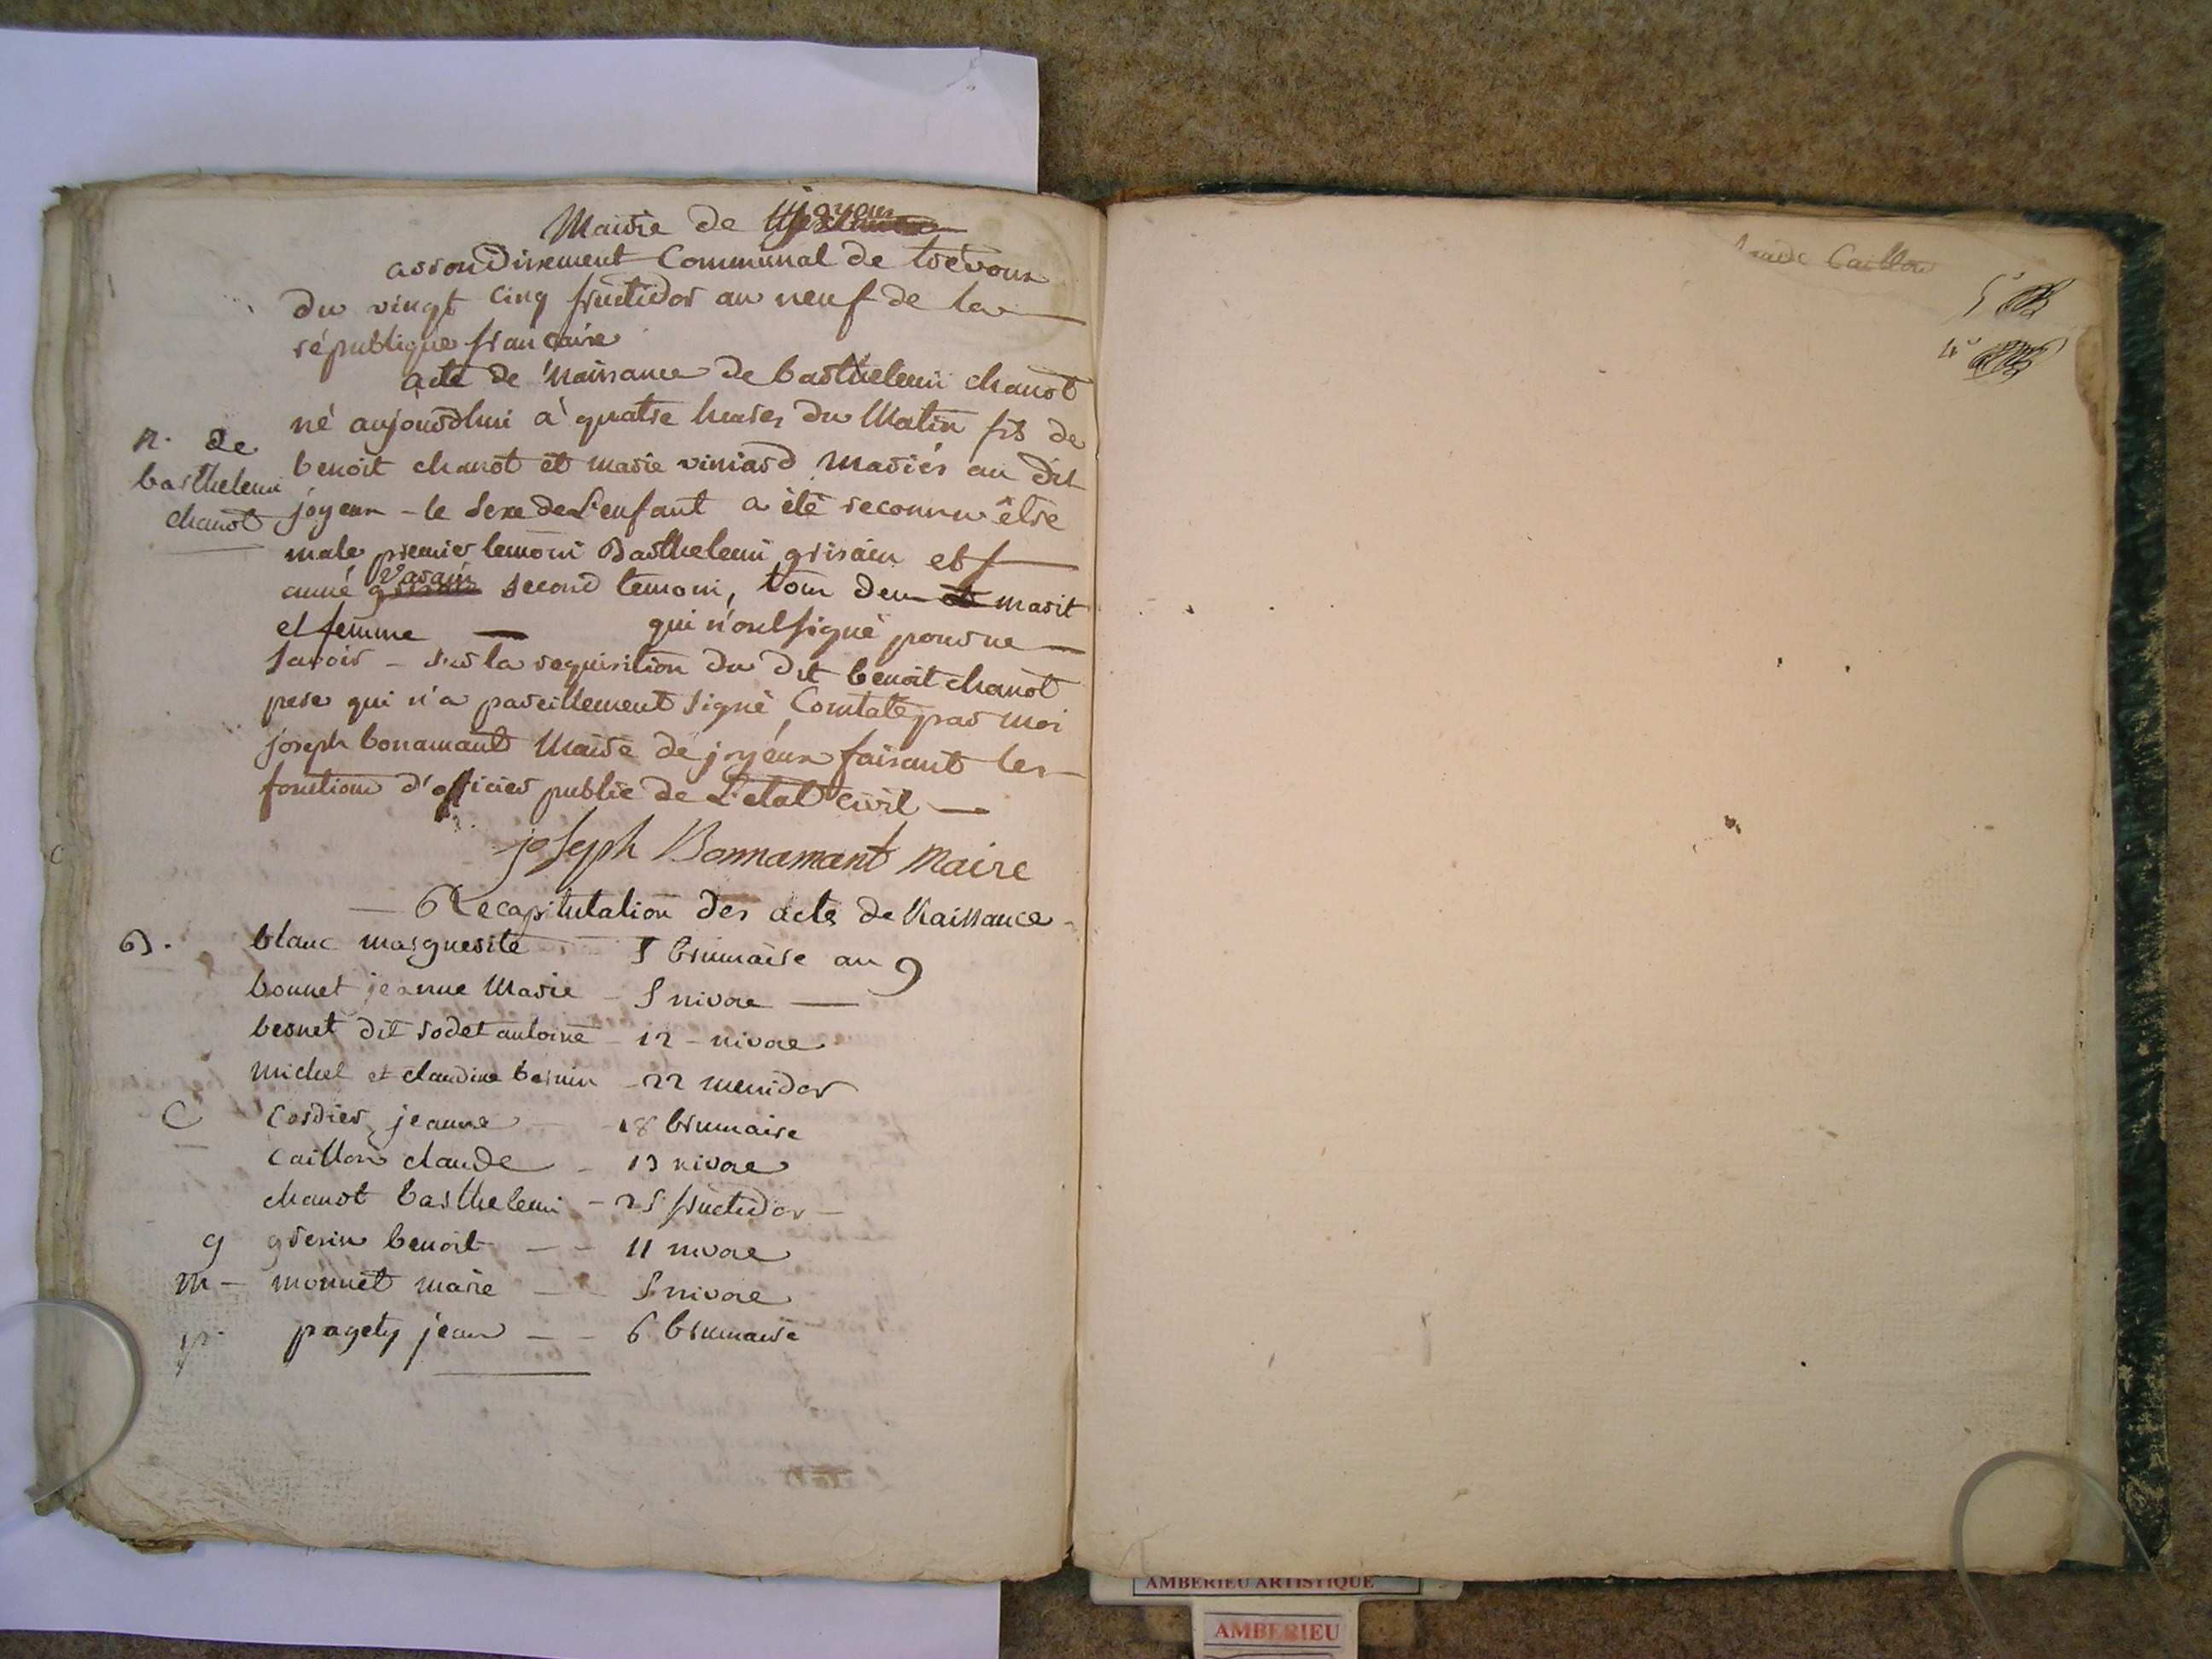 Mairie de joyeux
arrondissement Communal de trevoux
du vingt cinq fructidor an neuf de la
république francaise
acte de Naissance de barthelemi chanot
né aujourdhui à quatre heures du Matin fils de
benoit chanot et marie viniard mariés au dit
joyeux - le sexe de L'enfant a été reconnu être
male premier temoin Barthelemi grisain et
annè Varain second temoin, tous deux marit
et femme qui n'ont signé pour ne
savoir - sur la requisition du dit benoit chanot
pere qui n'a pareillement signé Constaté par moi
joseph bonamant Maire de joyeux faisant les
fonctions d'officier public de L'etat civil
n. de
barthelemi
chanot
joseph Bonnamant Maire
Récapitulation des actes de Naissance
B. blanc marguerite 5 brumaire an 9
bonnet jeanne Marie - 5 nivose
bernet dit rodet antoine - 12 - nivose
Michel et claudine bernin - 22 messidor
C Cordier jeanne - 18 brumaire
Caillon claude - 13 nivose
chanot barthelemi - 25 fructidor
g grerin benoit - - 11 nivose
M - monnet marie - 5 nivose
p. pagety jean - - 6 brumaire
Caillon
AMBERIEU ARTISTIQUE
AMBERIEU